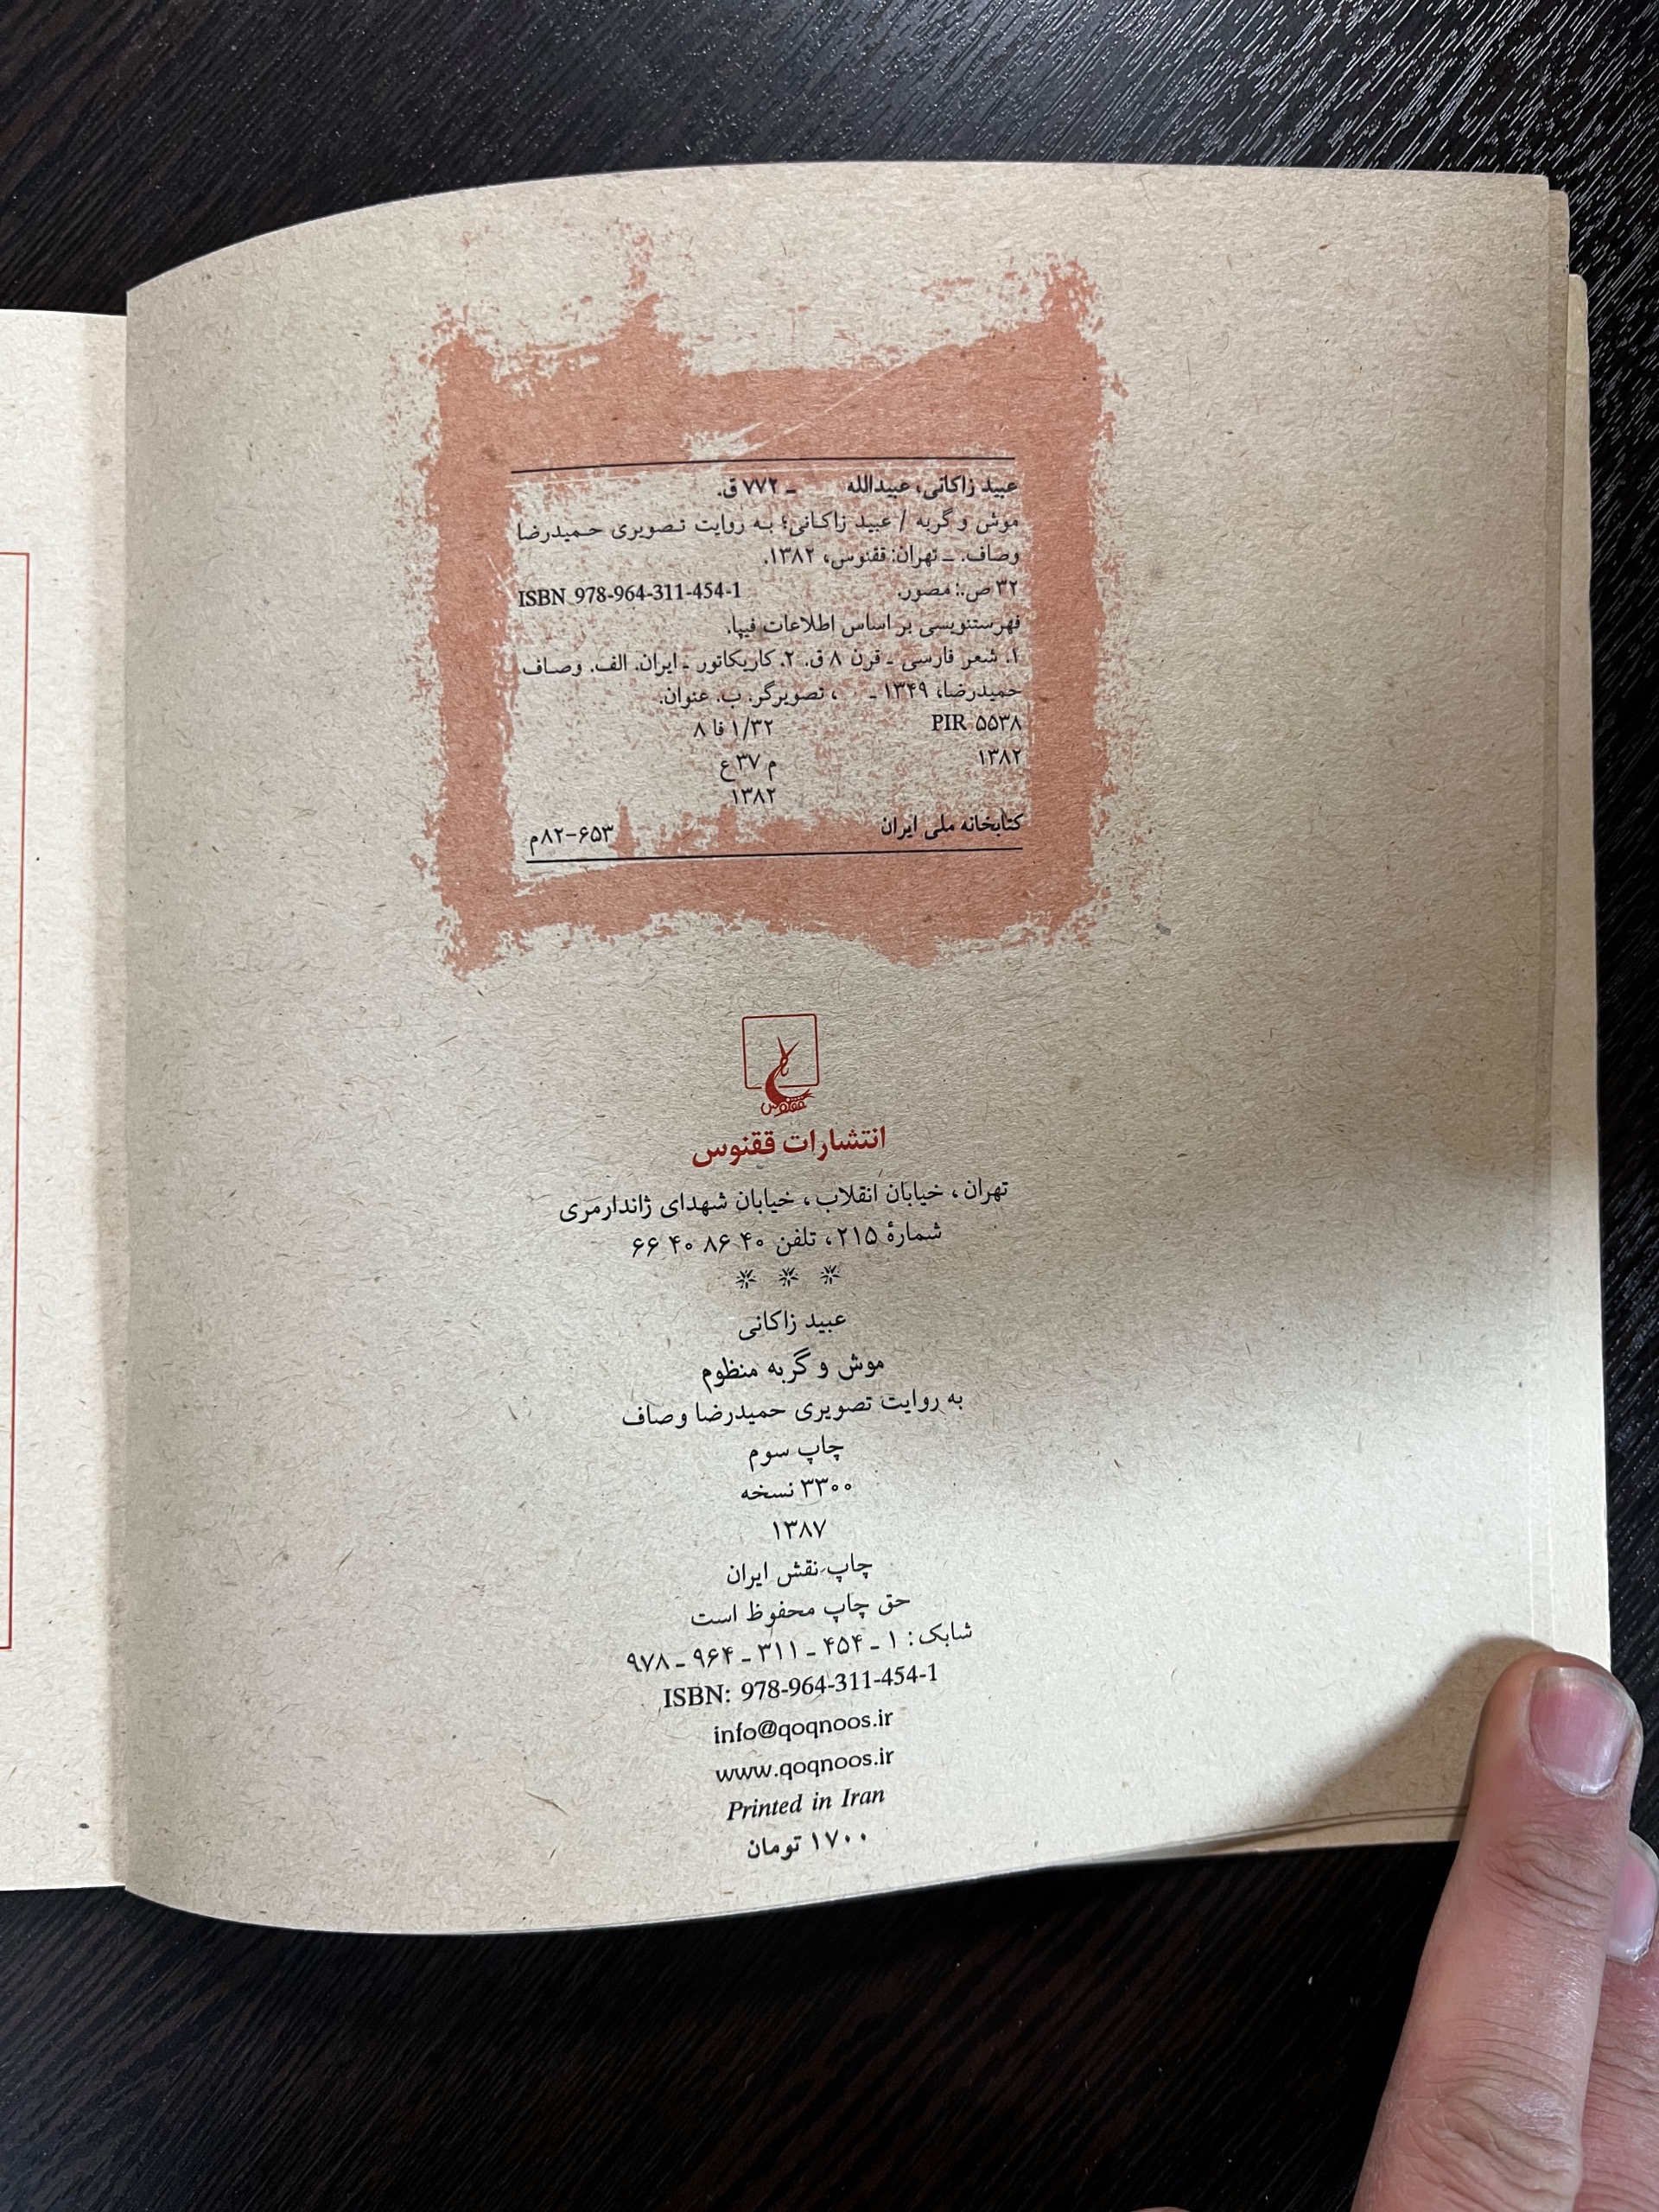 عبید زاکانی، عبیدالله ـ ۷۷۲ ق.
موش و گربه / عبید زاکانی؛ به روایت تصویری حمیدرضا
وصاف. ـ تهران: ققنوس، ۱۳۸۲.
۳۲ ص.: مصور. ISBN 978-964-311-454-1
فهرستنویسی بر اساس اطلاعات فیپا.
۱. شعر فارسی ـ قرن ۸ ق. ۲. کاریکاتور ـ ایران. الف. وصاف
حمیدرضا، ۱۳۴۹ ـ ، تصویرگر. ب. عنوان.
PIR ۵۵۳۸ ۸ فا ۱/۳۲
۱۳۸۲ م ۳۷ ع
۱۳۸۲
کتابخانه ملی ایران ۸۲-۶۵۳م
ققنوس
انتشارات ققنوس
تهران، خیابان انقلاب، خیابان شهدای ژاندارمری
شمارهٔ ۲۱۵، تلفن ۴۰ ۸۶ ۴۰ ۶۶
عبید زاکانی
موش و گربه منظوم
به روایت تصویری حمیدرضا وصاف
چاپ سوم
۳۳۰۰ نسخه
۱۳۸۷
چاپ نقش ایران
حق چاپ محفوظ است
شابک: ۱ ـ ۴۵۴ ـ ۳۱۱ ـ ۹۶۴ ـ ۹۷۸
ISBN: 978-964-311-454-1
info@qoqnoos.ir
www.qoqnoos.ir
Printed in Iran
۱۷۰۰ تومان